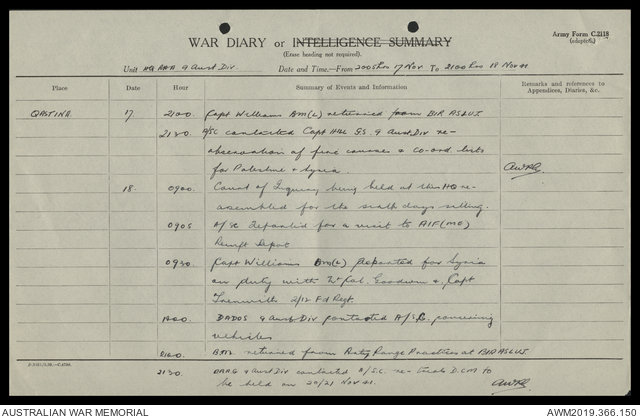 WAR DIARY or INTELLIGENCE SUMMARY
Army Form C.2118
(adapted).
(Erase heading not required).
Unit HQ RAA 9 Aust Div. Date and Time.—From 2005 hrs 17 Nov To 2100 hrs 18 Nov 41.
Place Date Hour Summary of Events and Information Remarks and references to
Appendices, Diaries, &c.
QASTINA 17 2100 Capt Williams BM(L) returned from BIR ASLUJ.
2130 A/SC contacted Capt GS. 9 Aust Div re-
observation of fire courses & co-ord lists
for Palestine & Syria.
18. 0900. Court of Inquiry being held at this HQ re-
assembled for the sixth days sitting.
0905 A/SC departed for a visit to AIF(ME)
Reinft Depot
0930. Capt Williams BM(L) departed for Syria
on duty with Lt Col. Goodwin & Capt
2/12 Fd Regt.
DADOS 9 Aust Div contacted A/SC
vehicles
BM. returned from Bty Range Practices at BIR ASLUJ
2130 DAAG 9 Aust Div contacted A/SC. re- DCM to
be held on 20/21 Nov 41.
AUSTRALIAN WAR MEMORIAL AWM2019.366.150